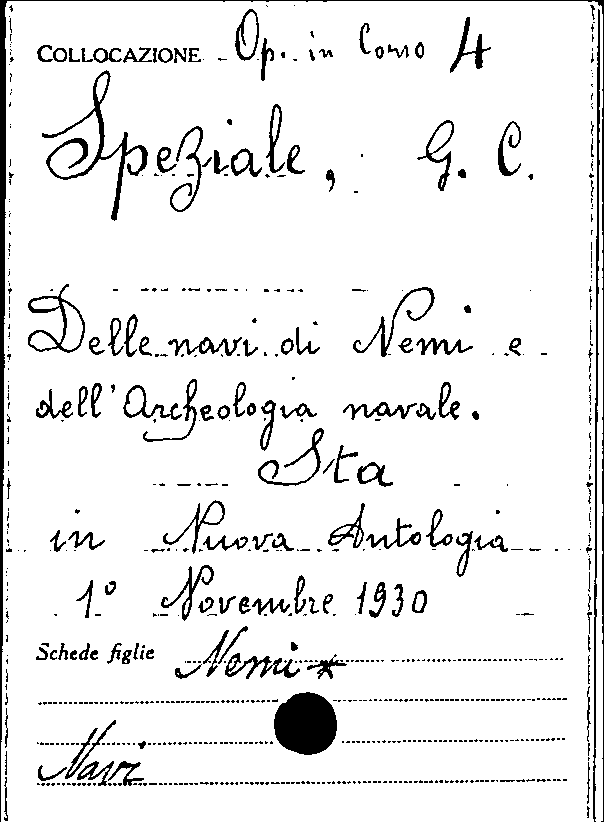 COLLOCAZIONE Op. in Corso 4
Speziale, G. C.
Delle navi di Nemi e
dell'Archeologia navale.
Sta
in Nuova Antologia
1° Novembre 1930
Schede figlie Nemi *
Navi